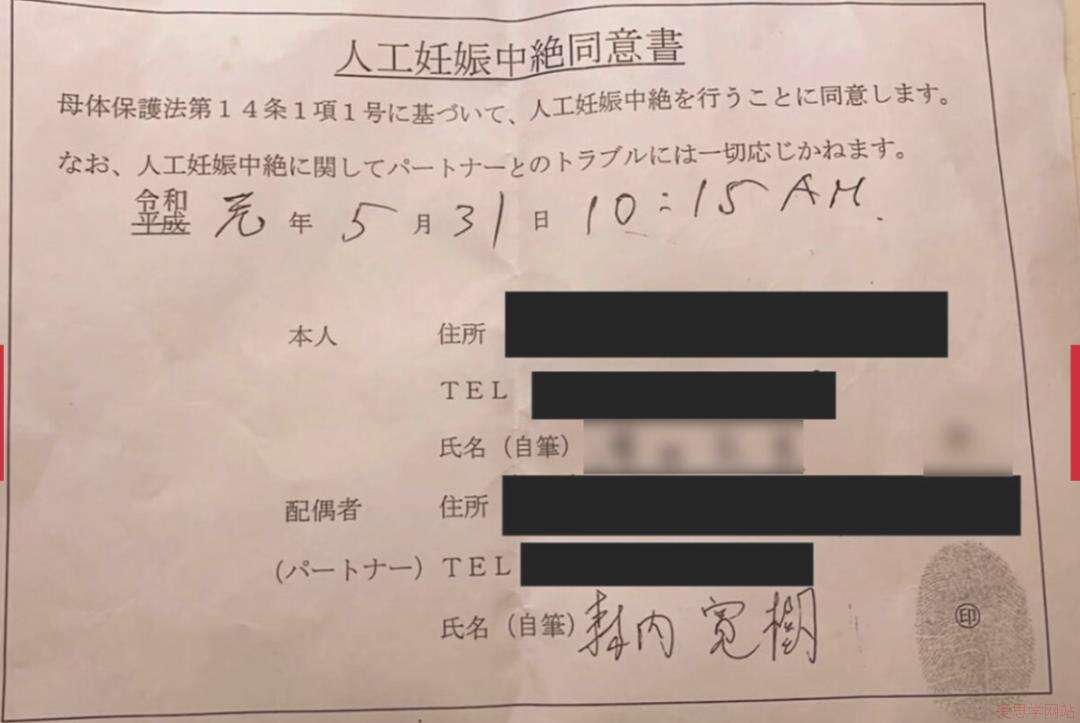 人工妊娠中絶同意書
母体保護法第14条1項1号に基づいて、人工妊娠中絶を行うことに同意します。
なお、人工妊娠中絶に関してパートナーとのトラブルには一切応じかねます。
令和
平成 元 年 5 月 31 日 10:15 AM.
本人 住所
TEL
氏名(自筆)
配偶者 住所
(パートナー) TEL
氏名(自筆) 森内 寛樹
印